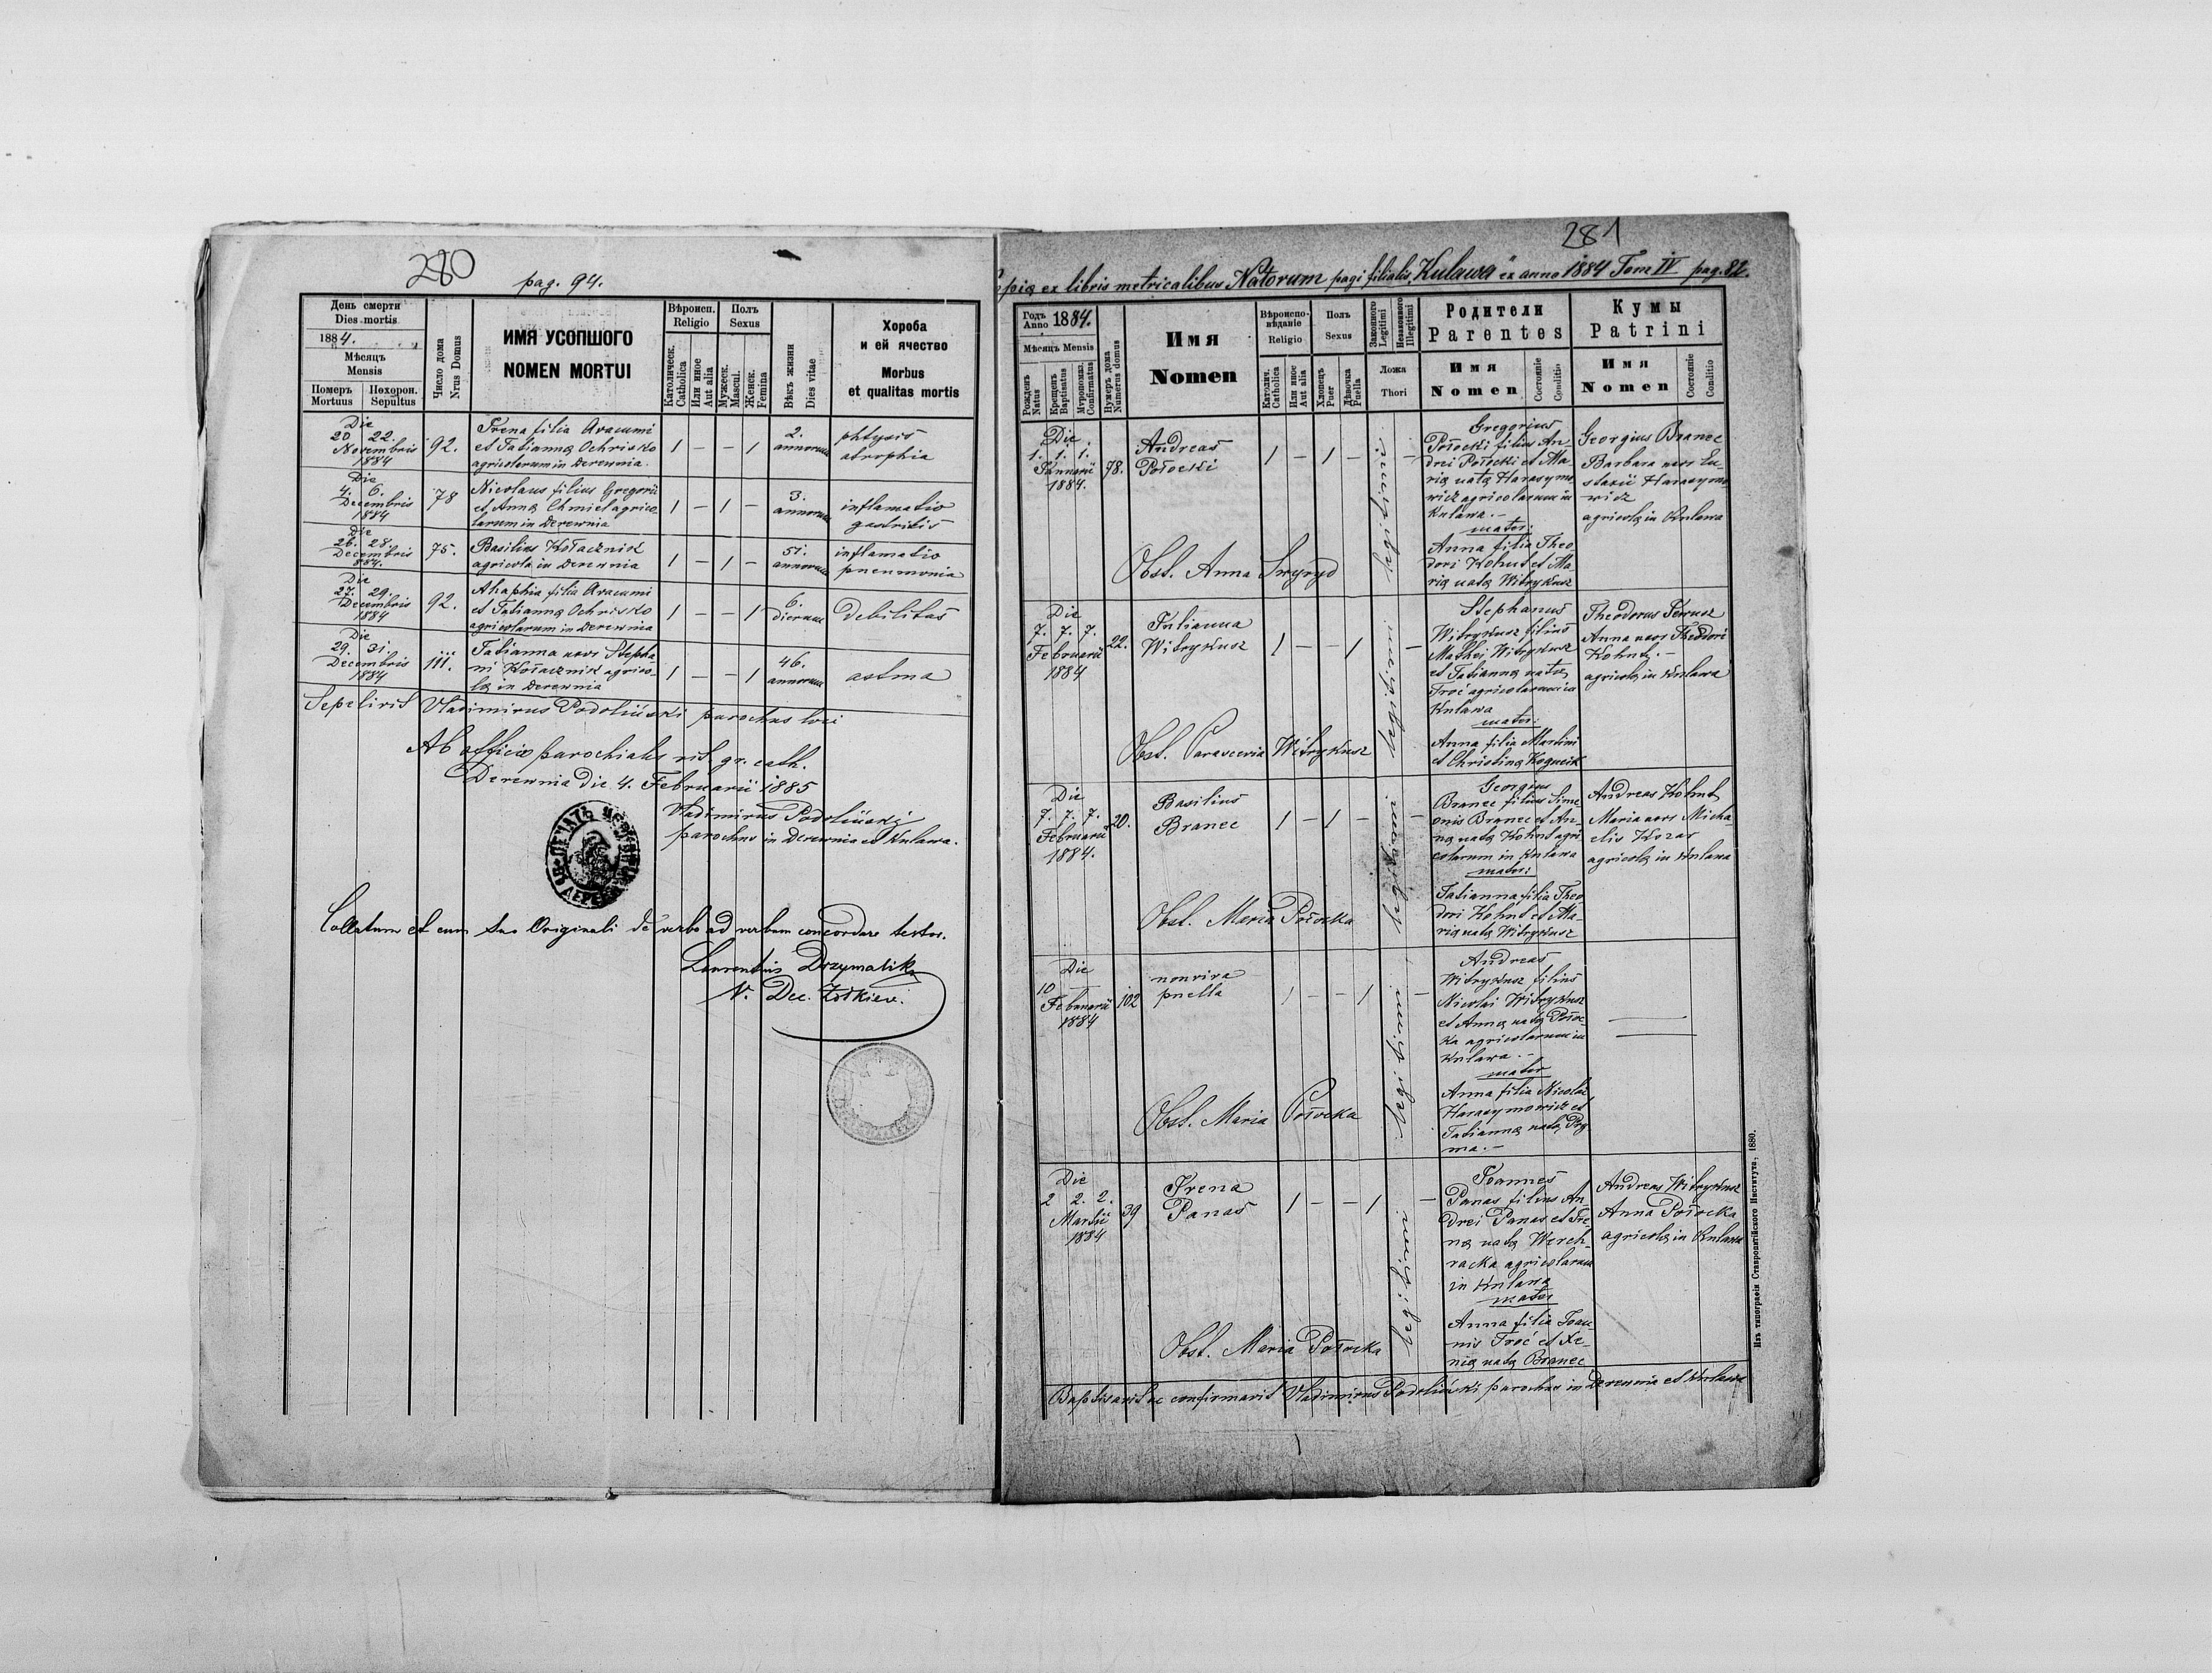 280
pag. 94.
День смерти
Dies mortis
1884.
Мѣсяць
Mensis
Померъ
Mortuus
Похорон.
Sepultus
Число дома
Nrus Domus
ИМЯ УСОПШОГО
NOMEN MORTUI
Вѣроисп.
Religio
Католическ.
Catholica
Или иное
Aut alia
Полъ
Sexus
Мужеск.
Mascul.
Женск.
Femina
Вѣкъ жизни
Dies vitae
Хороба
и ей ячество
Morbus
et qualitas mortis
Die
20 22.
Novembris
1884
92.
Irena filia Aracumi
et Tatianna Ochrisko
agricolarum in Derewnia.
1 – – 1
2.
annorum
phtysis
atrophia
Die
4. 6.
Decembris
1884
78
Nicolaus filius Gregorii
et Anna Chmiel agrico-
larum in Derewnia
1 – 1 –
3.
annorum
inflamatio
gastritis
Die
26. 28.
Decembris
884.
75.
Basilius Kołacznik
agricola in Derewnia
1 – 1 –
51.
annorum
inflamatio
pneumonia
Die
27. 29.
Decembris
1884
92.
Ahaphia filia Aracumi
et Tatianna Ochrisko
agricolarum in Derewnia
1 – – 1
6.
dierum
debilitas
Die
29. 31.
Decembris
1884
111.
Tatianna uxor Stepha-
ni Kołacznik agrico-
la in Derewnia
1 – – 1
46.
annorum
astma
Sepelivit Vladimirus Podoliński parochus loci
Ab officio parochiali rit. gr. cath.
Derewnia die 4. Februarii 1885
Vladimirus Podoliński
parochus in Derewnia et Kulawa.
Collatum et cum suo Originali de verbo ad verbum concordare testor.
Laurentius Drzymalik
V. Dec. Żołkiew.
281
Copia ex libris metricalibus Natorum pagi filialis „Kulawa" ex anno 1884 Tom IV pag. 82.
Годъ
Anno 1884.
Мѣсяць Mensis
Рожденъ
Natus
Крещенъ
Baptisatus
Мѵропомаз.
Confirmatus
Нумеръ дома
Numerus domus
Имя
Nomen
Вѣроиспо-
вѣданіе
Religio
Католич.
Catholica
Или иное
Aut alia
Полъ
Sexus
Хлопець
Puer
Дѣвочка
Puella
Законного
Legitimi
Незаконного
Illegitimi
Ложа
Thori
Родители
Parentes
Имя
Nomen
Состояніе
Conditio
Кумы
Patrini
Имя
Nomen
Состояніе
Conditio
Die
1. 1. 1.
Januarii
1884.
78.
Andreas
Potocki
1 – 1 –
legitimi
–
Gregorius
Potocki filius An-
drei Potocki et Ma-
ria nata Harasymo-
wicz agricolarum in
Kulawa. –
mater:
Anna filia Theo-
dori Kohut et Ma-
ria nata Witrykusz
Georgius Branec
Barbara uxor Eu-
stazii Harasymo-
wicz
agricola in Kulawa
Obst. Anna Swyryd
Die
7. 7. 7.
Februarii
1884
22.
Julianna
Witrykusz
1 – – 1
legitimi
–
Stephanus
Witrykusz filius
Mathei Witrykusz
et Tatianna nata
Troć agricolarum in
Kulawa
mater:
Anna filia Martini
et Christina Kogucik
Theodorus Ferusz
Anna uxor Theodori
Kohut. –
agricola in Kulawa
Obst. Parascevia Witrykusz
Die
7. 7. 7.
Februarii
1884.
20.
Basilius
Branec
1 – 1 –
legitimi
–
Georgius
Branec filius Sime
onis Branec et An-
na nata Kohut agri
colarum in Kulawa
mater:
Tatianna filia Theo
dori Kohut et Ma-
ria nata Witrykusz
Andreas Kohut
Maria uxor Micha-
elis Kozar
agricola in Kulawa
Obst. Maria Potocka
Die
10
Februarii
1884
102
nonviva
puella
1 – – 1
legitimi
–
Andreas
Witrykusz filius
Nicolai Witrykusz
et Anna nata Potoc-
ka agricolarum in
Kulawa. –
mater
Anna filia Nicolai
Harasymowicz et
Tatianna nata
ma. –
Obst. Maria Potocka
Die
2 2. 2.
Martii
1884
39
Irena
Panas
1 – – 1
legitimi
–
Joannes
Panas filius An-
drei Panas et Ire-
na nata Werch-
racka agricolarum
in Kulawa
mater
Anna filia Joan-
nis Troć et Xe-
nia nata Branec
Andreas Witrykusz
Anna Potocka
agricola in Kulawa
Obst. Maria Potocka
Baptisavit ac confirmavit Vladimirus Podoliński parochus in Derewnia et Kulawa
Изъ типографіи Ставропигійского Института, 1880.